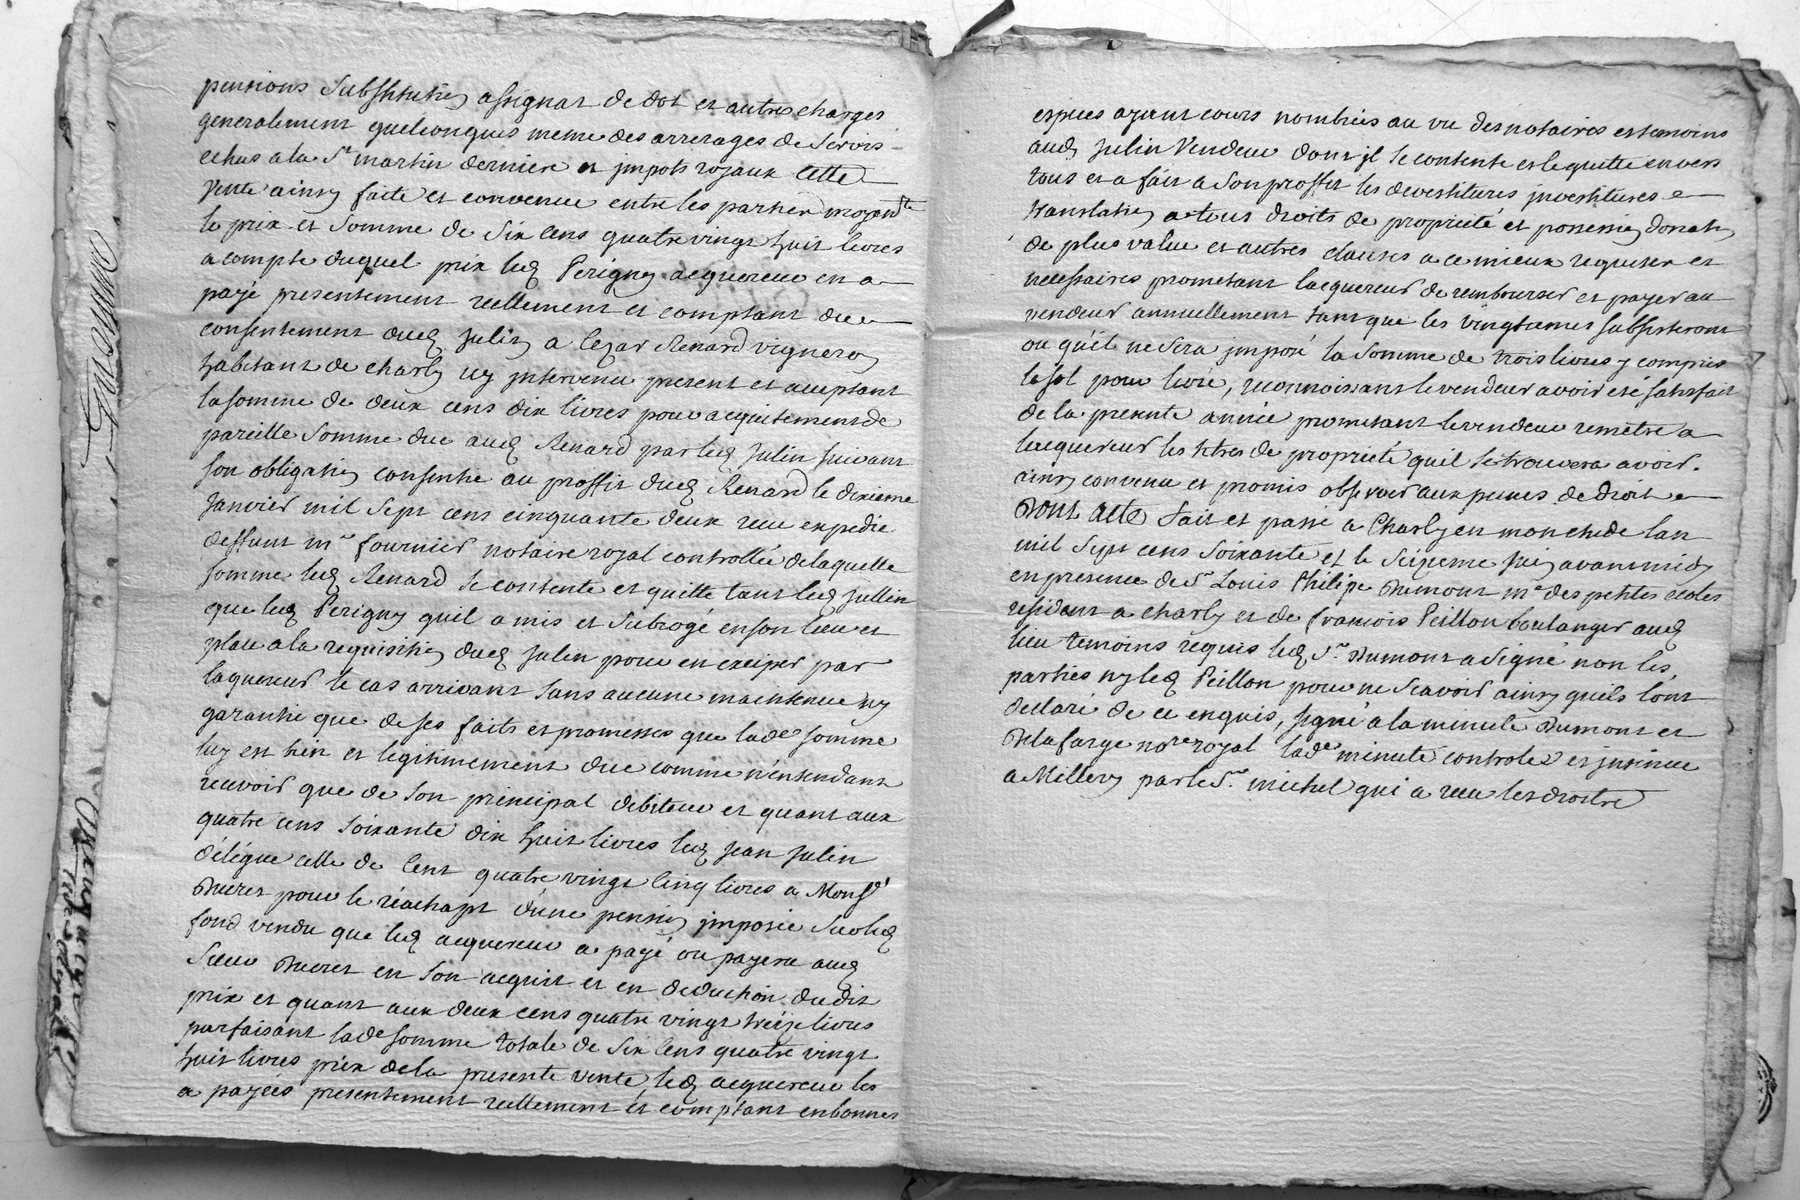 pensions Substitution assignat de dot et autres charges
generalement quelconques meme des arrerages de servis
echus a la St martin derniere et jmpots royaux Cette
Vente ainsy faite et convenue entre les parties moyent
le prix et Somme de Six Cens quatre vingt huit livres
a compte duquel prix led Perigny acquereur en a
payé presentement reellement et comptant du
consentement dud Julin a Cezar Renard vigneron
habitant de charly icy jntervenu present et acceptant
la somme de deux cens dix livres pour acquitement de
pareille Somme due aud Renard par led Julin suivant
son obligation consentie au proffit dud Renard le dixieme
Janvier mil Sept cens cinquante deux recu expedie
deffunt me fournier notaire royal controllée de laquelle
somme led Renard se contente et quitte tant led Jullin
que led Perigny quil a mis et Subrogé en son lieu et
place a la requisition dud Julin pour en exciper par
laquereur le cas arrivant sans aucune maintenue ny
garantie que de ses faits et promesses que lade somme
luy est bien et legitimement due comme n'entendant
recevoir que de son principal debiteur et quant aux
quatre cens soixante dix huit livres led jean Julin
délégue celle de Cent quatre vingt Cinq livres a Monsr
Ducret pour le réachapt d'une pension jmposée Sur led
fond vendu que led acquereur a payé ou payera aud
Sieur Ducret en son acquit et en deduction du dit
prix et quant aux deux cens quatre vingt treize livres
parfaisant lade somme totale de Six Cens quatre vingt
huit livres prix de la presente vente led acquereur les
a payées presentement reellement et comptant en bonnes
especes ayant cours nombrées au vu des notaires et temoins
aud Julin Vendeur dont jl se contente et le quitte envers
tous et a fait a son proffit les devestitures jnvestitures
translation a tous droits de proprieté et possession donation
de plus value et autres clauses a ce mieux requises et
necessaires promettant lacquereur de rembourser et payer au
vendeur annuellement tant que les vingtiemes subsisteront
ou qu'il ne sera jmposé la somme de trois livres y compris
le sol pour livre, reconnoissant le vendeur avoir eté satisfait
de la presente année prometant le vendeur remettre a
lacquereur les titres de proprieté quil se trouvera avoir.
ainsy convenu et promis observer aux peines de droit
Dont Acte Fait et passé a Charly en mon etude lan
mil Sept cens Soixante et le Sizieme juin avant midy
en presence de Sr Louis Philipe Dumont me des petites ecoles
résident a charly et de françois Peillon boulanger aud
lieu temoins requis led Sr Dumont a signé non les
parties ny led Peillon pour ne scavoir ainsy quils l'ont
declaré de ce enquis, signé a la minute Dumont et
Delafarge nore royal lade minute controlée et jnsinuée
a Millery par le Sr michel qui a recu les droits